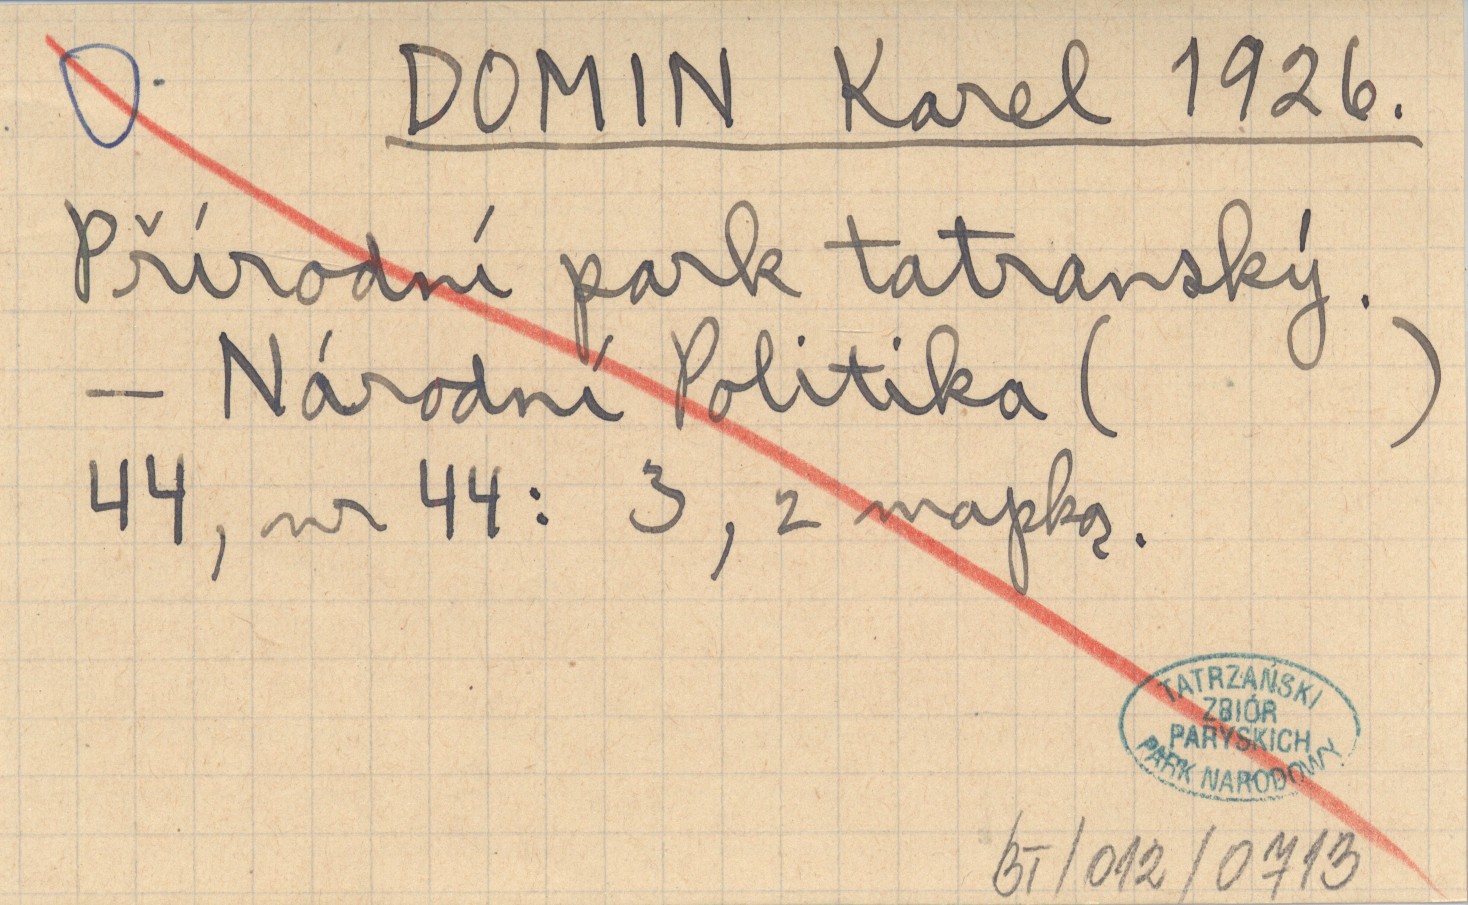 DOMIN Karel 1926.
Přírodní park tatranský.
— Národní Politika (          )
44, nr 44: 3, z mapką.
TATRZAŃSKI
ZBIÓR
PARYSKICH
PARK NARODOWY
BT/012/0713